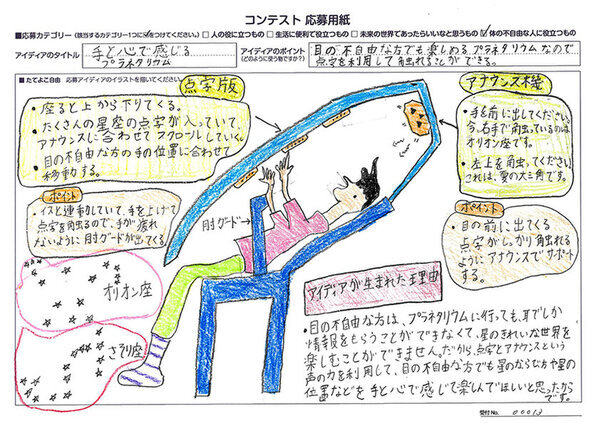 コンテスト 応募用紙
■応募カテゴリー(該当するカテゴリー1つに✓をつけてください。) □人の役に立つもの □生活に便利で役立つもの □未来の世界であったらいいなと思うもの ☑体の不自由な人に役立つもの
アイディアのタイトル
手と心で感じる
プラネタリウム
アイディアのポイント
(どのように使う物ですか?)
目の不自由な方でも楽しめるプラネタリウムなので
点字を利用して触れることができる。
■たてよこ自由 応募アイディアのイラストを描いてください。
点字版
・座ると上から下りてくる。
・たくさんの星座の点字が入っていて、
アナウンスに合わせてスクロールしていく。
・目の不自由な方の手の位置に合わせて
移動する。
ポイント
・イスと連動していて、手を上げて
点字を触るので、手が疲れ
ないように肘ガードが出てくる。
肘ガード
オリオン座
さそり座
アナウンス機
・手を前に出してください。
今、右手で触っているのは
オリオン座です。
・左上を触ってください。
これは、夏の大三角です。
ポイント
・目の前に出てくる
点字がしっかり触れる
ようにアナウンスでサポート
する。
アイディアが生まれた理由
・目の不自由な方は、プラネタリウムに行っても、耳でしか
情報をもらうことができなくて、星のきれいな世界を
楽しむことができません。だから、点字とアナウンスという
声の力を利用して、目の不自由な方でも星のならび方や星の
位置などを手と心で感じて楽しんでほしいと思ったから
です。
受付No. 00013